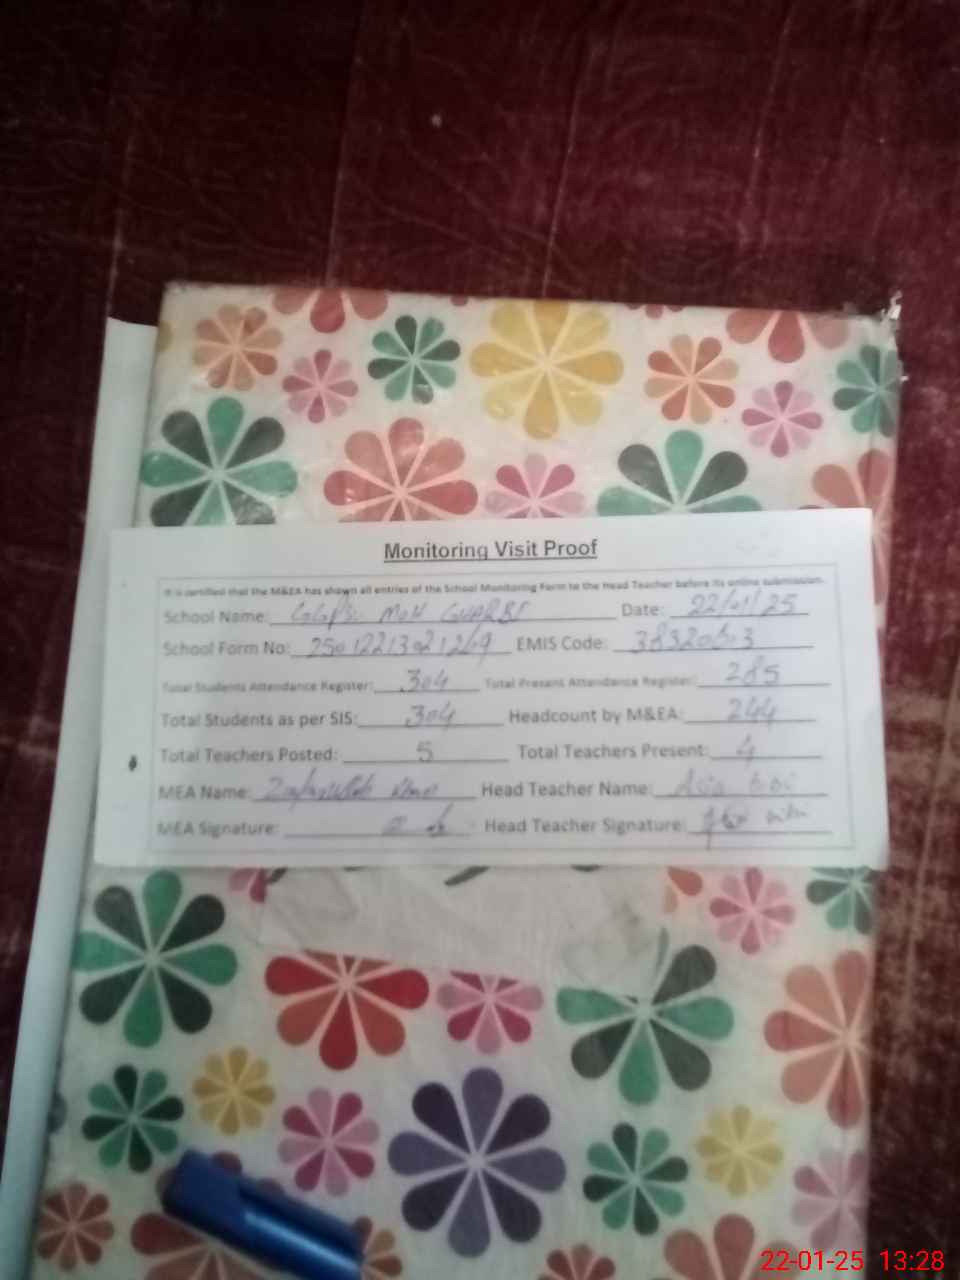 Monitoring Visit Proof
It is certified that the M&EA has shown all entries of the School Monitoring Form to the Head Teacher before its online submission.
School Name: GGPS MOH GHARBI Date: 22/01/25
School Form No: EMIS Code:
Total Students Attendance Register: 304 Total Present Attendance Register: 285
Total Students as per SIS: 304 Headcount by M&EA: 244
Total Teachers Posted: 5 Total Teachers Present: 4
MEA Name: Head Teacher Name: Asia bibi
MEA Signature: Head Teacher Signature:
22-01-25 13:28